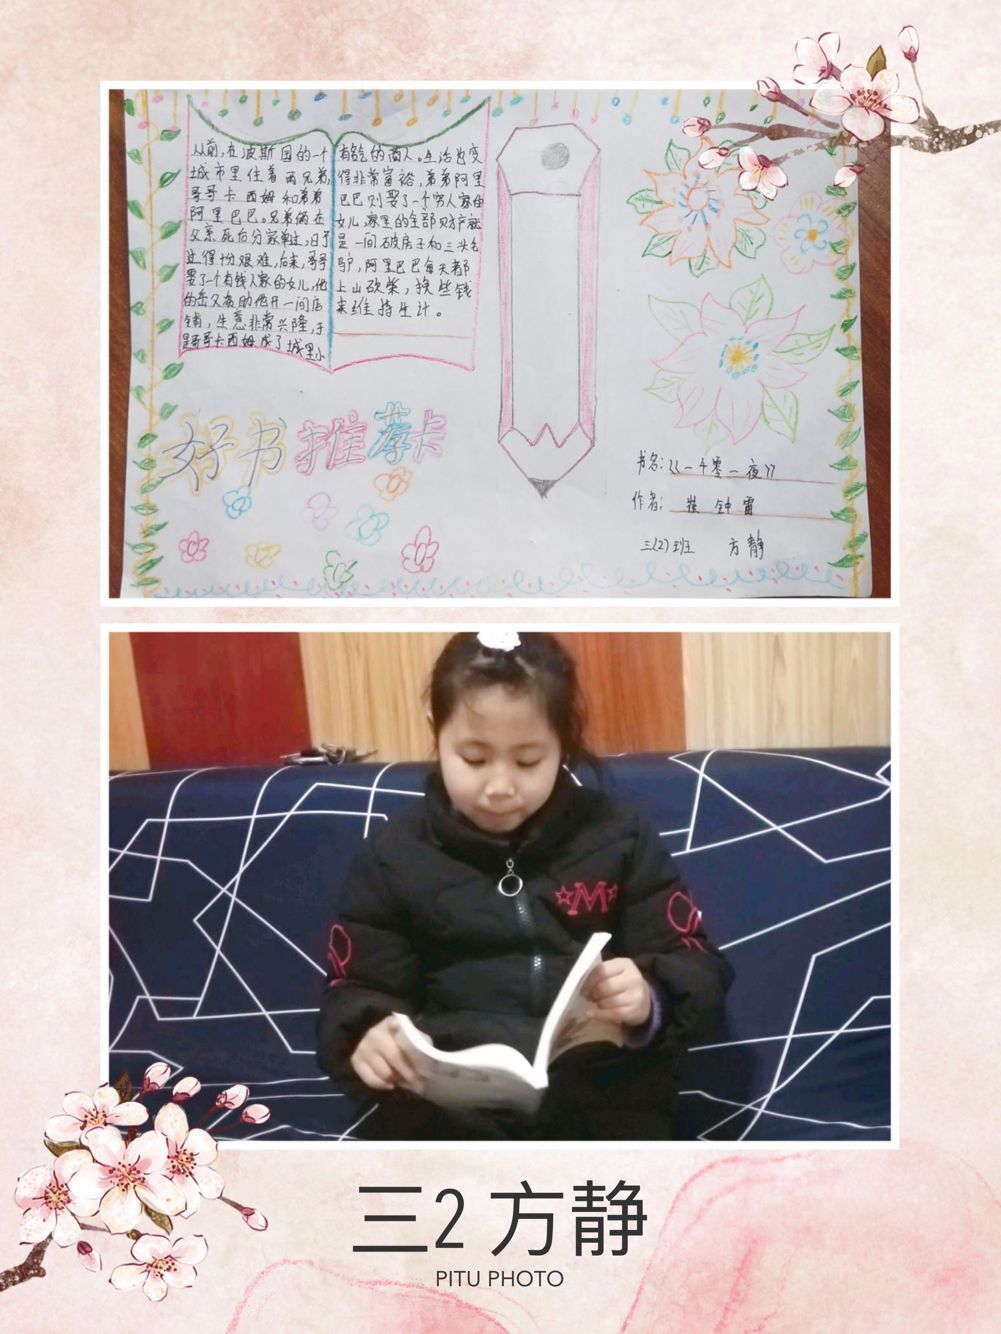 从前,在波斯国的一个
城市里住着两兄弟,
哥哥卡西姆和弟弟
阿里巴巴。兄弟俩在
父亲死后分家单过,日子
过得份艰难,后来,哥哥
娶了一个有钱人家的女儿,他
的岳父資助他开一间店
铺,生意非常兴隆,于
是哥哥卡西姆成了城里小
有名的商人。生活也变
得非常富裕,弟弟阿里
巴巴则娶了一个穷人家的
女儿,家里的全部财产就
是一间破房子和三头毛
驴,阿里巴巴每天都
上山砍柴,换些钱
来维持生计。
好书推荐卡
书名:《一千零一夜》
作者: 崔钟雷
三(2)班 方静
M
三2 方静
PITU PHOTO